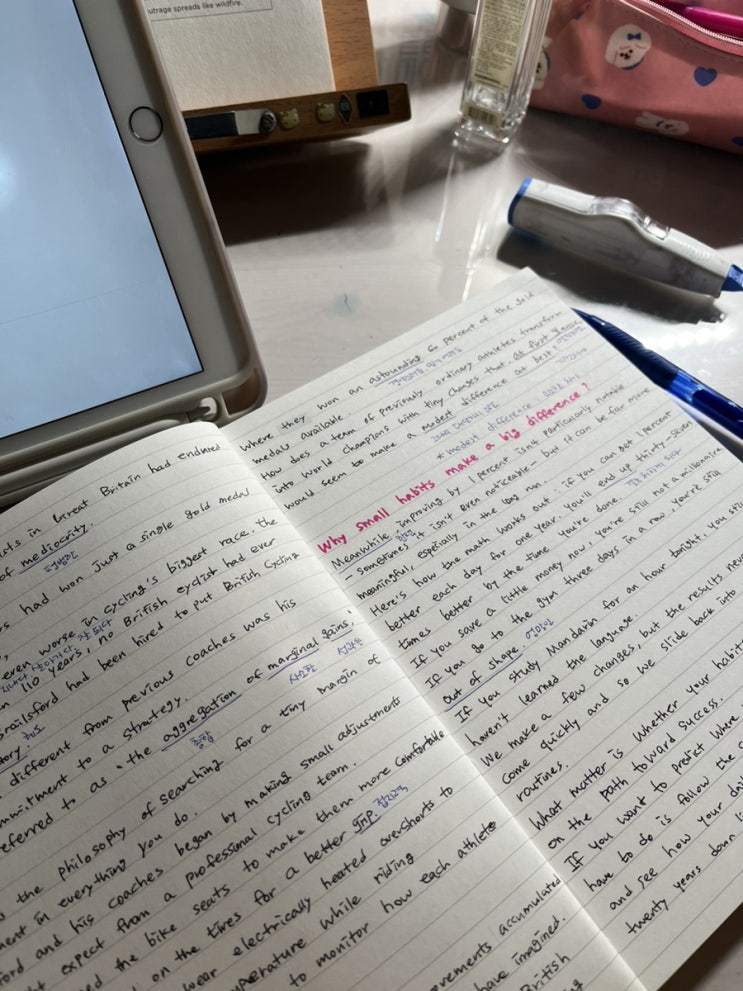 utrage spreads like wildfire.
ists in Great Britain had endured
of mediocrity.
평범함
rs had won just a single gold medal
even worse in cycling's biggest race, the
110 years, no British cyclist had ever
Brailsford had been hired to put British Cycling
different from previous coaches was his
mmitment to a strategy.
eferred to as "the aggregation of marginal gains,"
종합
the philosophy of searching for a tiny margin of
ment in everything you do.
ford and his coaches began by making small adjustments
expect from a professional cycling team.
ed the bike seats to make them more comfortable
on the tires for a better grip.
wear electrically heated overshorts to
perature while riding
to monitor how each athlete
ovements accumulated
have imagined.
British
where they won an astounding 6 percent of the gold
medals available.
How does a team of previously ordinary athletes transform
into world champions with tiny changes that at first glance,
would seem to make a modest difference at best?
* modest difference
Why small habits make a big difference?
Meanwhile, improving by 1 percent isn't particularly notable
- sometimes it isn't even noticeable - but it can be far more
meaningful, especially in the long run.
Here's how the math works out: if you can get 1 percent
better each day for one year, you'll end up thirty-seven
times better by the time you're done.
If you save a little money now, you're still not a millionaire
If you go to the gym three days in a row, you're still
out of shape.
If you study Mandarin for an hour tonight, you still
haven't learned the language
We make a few changes, but the results never
come quickly and so we slide back into
routines.
What matter is whether your habit
on the path toward success.
If you want to predict where
have to do is follow the
and see how your dai
twenty years down li